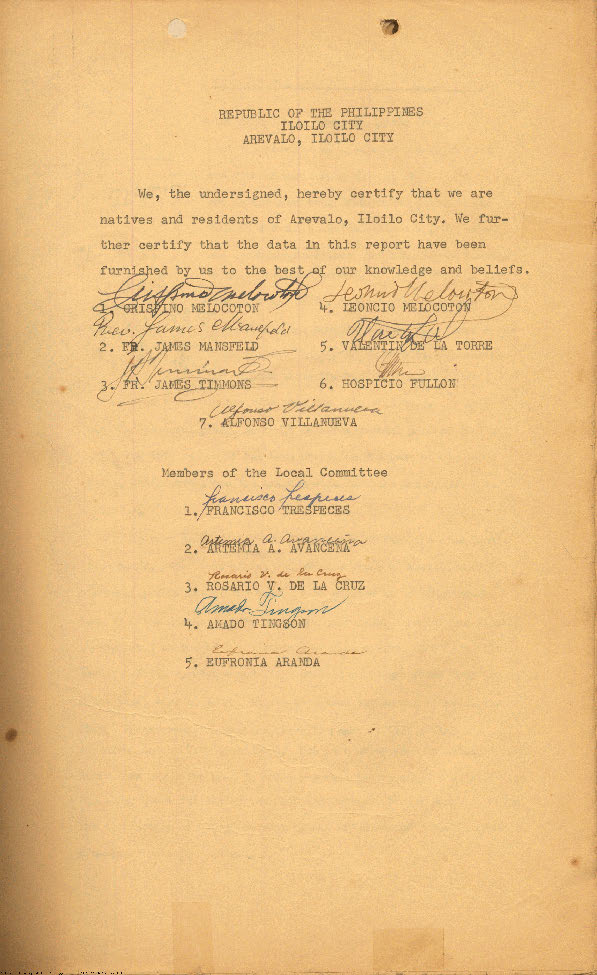 REPUBLIC OF THE PHILIPPINES
ILOILO CITY
AREVALO, ILOILO CITY
We, the undersigned, hereby certify that we are
natives and residents of Arevalo, Iloilo City. We fur-
ther certify that the data in this report have been
furnished by us to the best of our knowledge and beliefs.
Crispino Melocoton
1. CRISPINO MELOCOTON
Rev. James Mansfeld
2. FR. JAMES MANSFELD
3. FR. JAMES TIMMONS
Leoncio Melocoton
4. LEONCIO MELOCOTON
5. VALENTIN DE LA TORRE
6. HOSPICIO FULLON
Alfonso Villanueva
7. ALFONSO VILLANUEVA
Members of the Local Committee
Francisco Trespeces
1. FRANCISCO TRESPECES
Artemia A. Avanceña
2. ARTEMIA A. AVANCEÑA
Rosario V. de la Cruz
3. ROSARIO V. DE LA CRUZ
Amado Tingson
4. AMADO TINGSON
Eufronia Aranda
5. EUFRONIA ARANDA